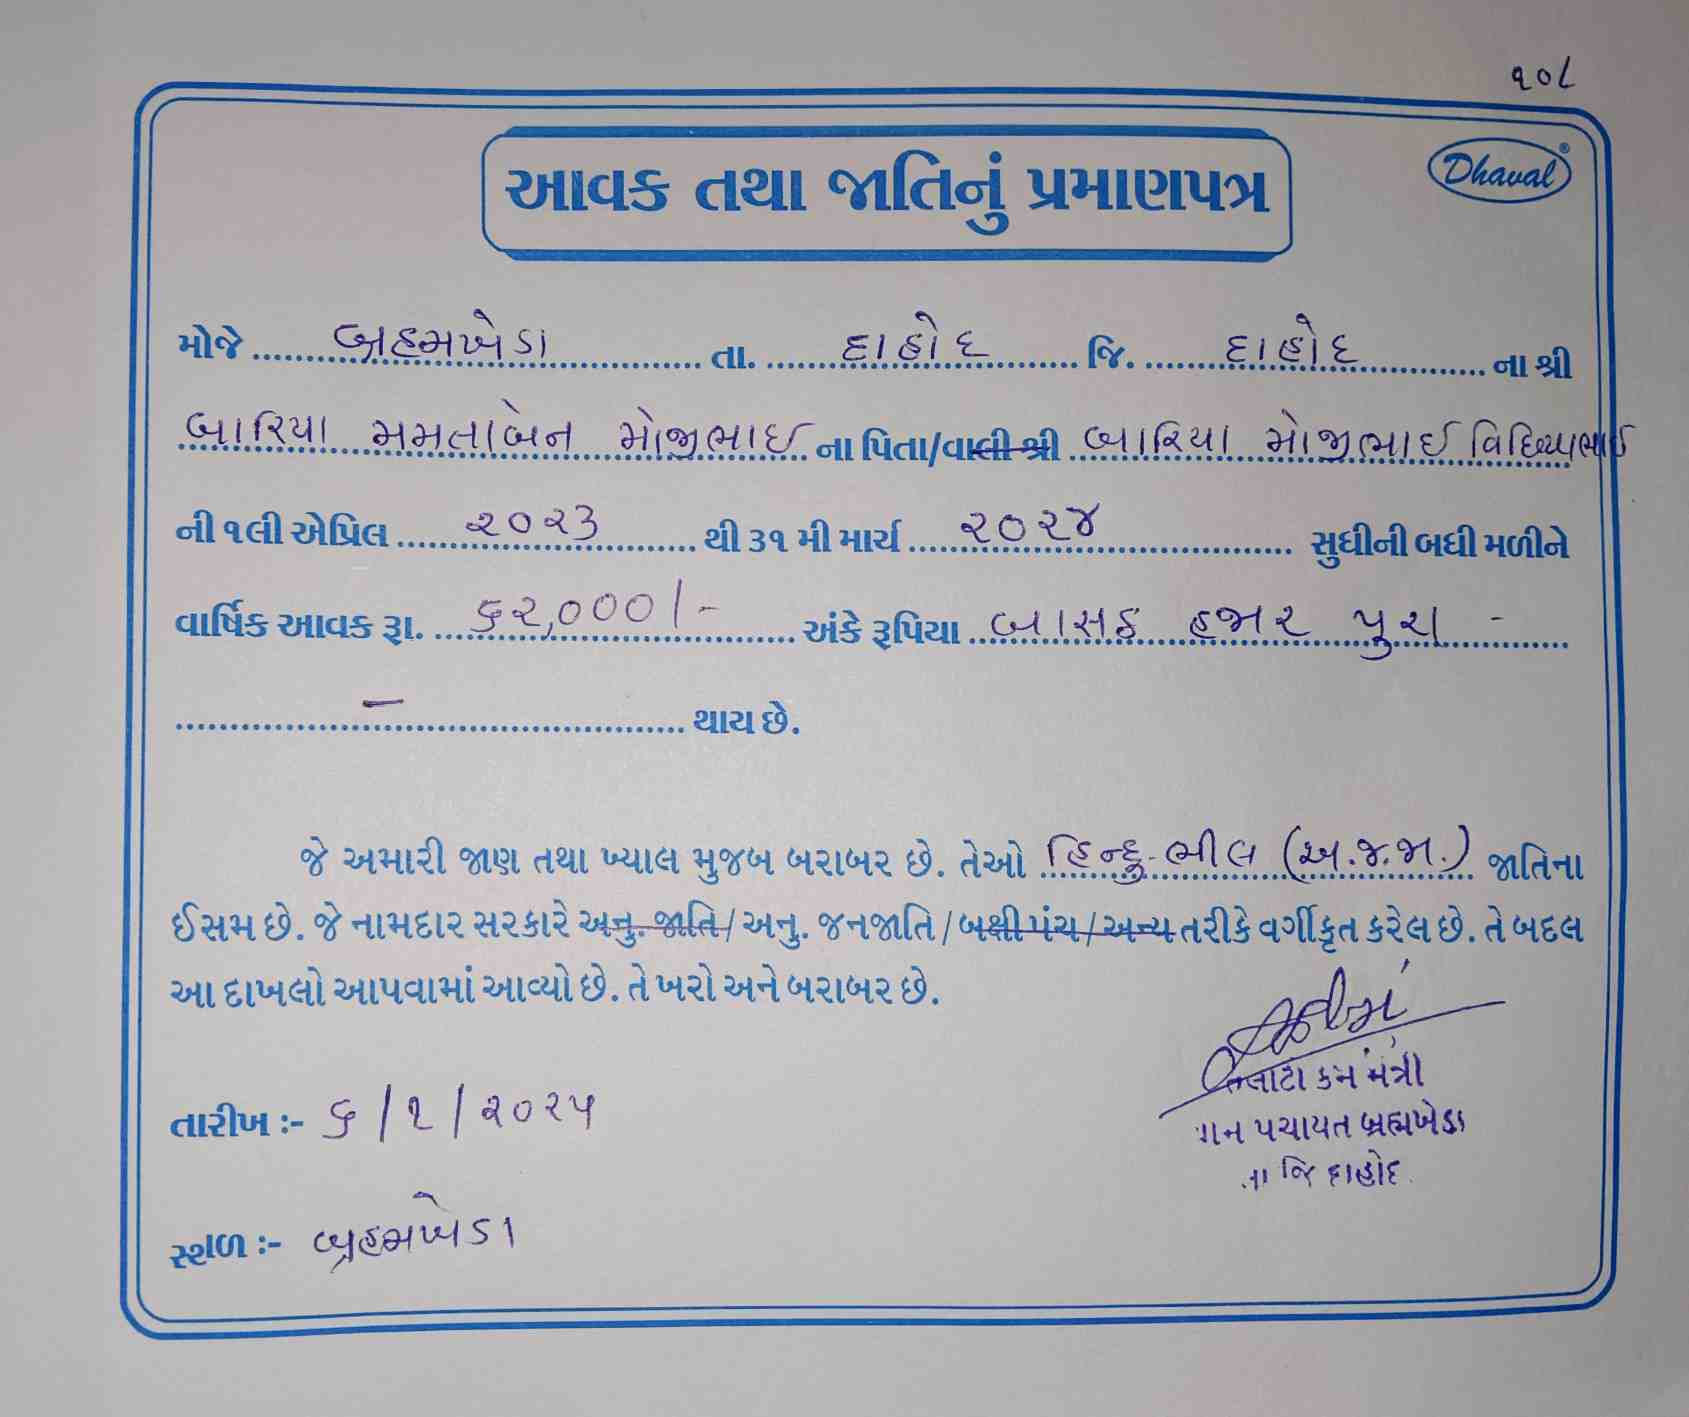 ૧૦૮
આવક તથા જાતિનું પ્રમાણપત્ર
Dhaval®
મોજે બ્રહમખેડા તા. દાહોદ જિ. દાહોદ ના શ્રી
બારિયા મમતાબેન મોજીભાઈ ના પિતા/વાલી શ્રી બારિયા મોજીભાઈ
ની ૧લી એપ્રિલ ૨૦૨૩ થી ૩૧ મી માર્ચ ૨૦૨૪ સુધીની બધી મળીને
વાર્ષિક આવક રૂા. ૬૨,૦૦૦/- અંકે રૂપિયા બાસઠ હજાર પુરા -
- થાય છે.
જે અમારી જાણ તથા ખ્યાલ મુજબ બરાબર છે. તેઓ હિન્દુ-ભીલ (અ.જ.જા.) જાતિના
ઈસમ છે. જે નામદાર સરકારે અનુ. જાતિ/અનુ. જનજાતિ/બક્ષીપંચ/અન્ય તરીકે વર્ગીકૃત કરેલ છે. તે બદલ
આ દાખલો આપવામાં આવ્યો છે. તે ખરો અને બરાબર છે.
તલાટી કમ મંત્રી
તારીખ :- ૬/૧/૨૦૨૫
પચાયત બ્રહ્મખેડા
તા જિ દાહોદ
સ્થળ :- બ્રહમખેડા